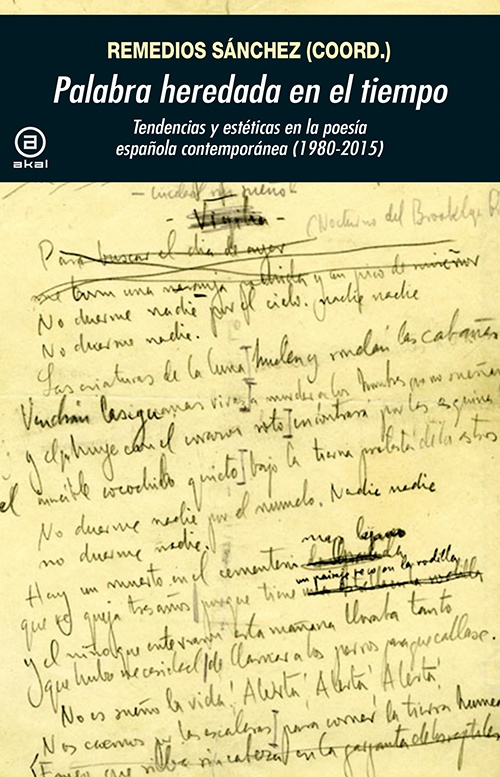 REMEDIOS SÁNCHEZ (COORD.)
Palabra heredada en el tiempo
Tendencias y estéticas en la poesía
española contemporánea (1980-2015)
a
akal
ciudad sin sueño
Vigilia
(Nocturno del Brooklyn
Para buscar el dia de ayer
me una naranja y un pico de
No duerme nadie por el cielo. Nadie nadie
No duerme nadie.
Las criaturas de la luna huelen y rondan las cabañas
Vendrán las iguanas vivas a morder a los hombres que no sueñan
y el que huye con el corazon roto encontrará por las esquinas
el increible cocodrilo quieto bajo la tierna protesta de los astros
No duerme nadie por el mundo. Nadie nadie
no duerme nadie.
mas lejano
Hay un muerto en el cementerio
un paisaje seco en la rodilla
que se queja tres años porque tiene
y el niño que enterraron esta mañana lloraba tanto
que hubo necesidad de llamar a los perros para que callase.
No es sueño la vida! Alerta! Alerta! Alerta!
Nos caemos por las escaleras para comer la tierra humeda
en la garganta de los reptiles